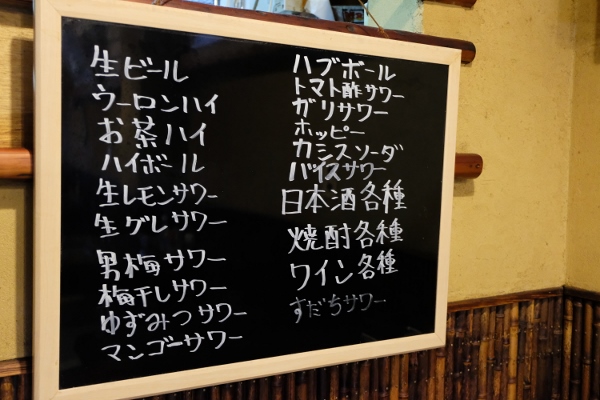 生ビール
ウーロンハイ
お茶ハイ
ハイボール
生レモンサワー
生グレサワー
男梅サワー
梅干しサワー
ゆずみつサワー
マンゴーサワー
ハブボール
トマト酢サワー
ガリサワー
ホッピー
カシスソーダ
バイスサワー
日本酒各種
焼酎各種
ワイン各種
すだちサワー